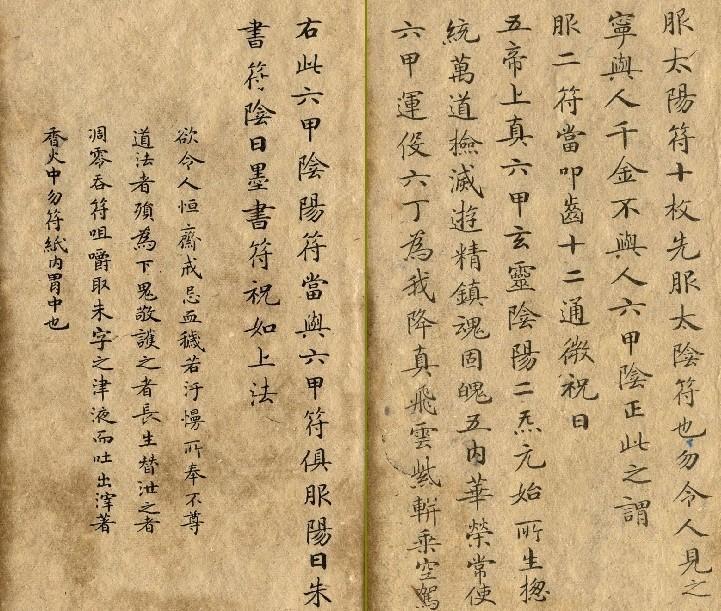 服太陽符十枚先服太陰符也勿令人見之
寧與人千金不與人六甲陰正此之謂
服二符當叩齒十二通微祝曰
五帝上真六甲玄靈陰陽二炁元始所生揔
統萬道撿滅遊精鎮魂固魄五內華榮常使
六甲運役六丁為我降真飛雲紫軿乘空駕
右此六甲陰陽符當與六甲符俱服陽日朱
書符陰日墨書符祝如上法
欲令人恒齋戒忌血穢若汙慢所奉不尊
道法者殞為下鬼敬護之者長生替泄之者
凋零吞符咀嚼取朱字之津液而吐出滓著
香火中勿符紙內胃中也